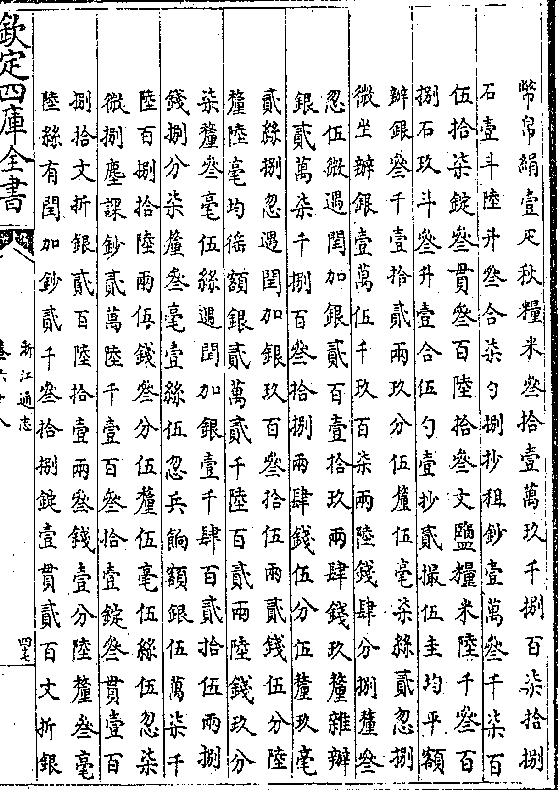 幣帛絹壹疋秋糧米叄拾壹萬玖千捌百柒拾捌
石壹斗陸升叄合柒勺捌抄租鈔壹萬叄千柒百
伍拾柒錠叄貫叄百陸拾叄文鹽糧米陸千叄百
捌石玖斗叄升壹合伍勺壹抄貳撮伍圭均平額
辦銀叄千壹拾貳兩玖分伍釐伍毫柒絲貳忽捌
微坐辦銀壹萬伍千玖百柒兩陸錢肆分捌釐叄
忽伍微遇閏加銀貳百壹拾玖兩肆錢玖釐雜辦
銀貳萬柒千捌百叄拾捌兩肆錢伍分伍釐玖毫
貳絲捌忽遇閏加銀玖百叄拾伍兩貳錢伍分陸
釐陸毫均徭額銀貳萬貳千陸百貳兩陸錢玖分
柒釐叄毫伍絲遇閏加銀壹千肆百貳拾伍兩捌
錢捌分柒釐叄毫壹絲伍忽兵餉額銀伍萬柒千
陸百捌拾陸兩伍錢叄分伍釐伍毫伍絲伍忽柒
微捌塵課鈔貳萬陸千壹百叄拾壹錠叄貫壹百
捌拾文折銀貳百陸拾壹兩叄錢壹分陸釐叄毫
陸絲有閏加鈔貳千叄拾捌錠壹貫貳百文折銀
欽定四庫全書
浙江通志
四七